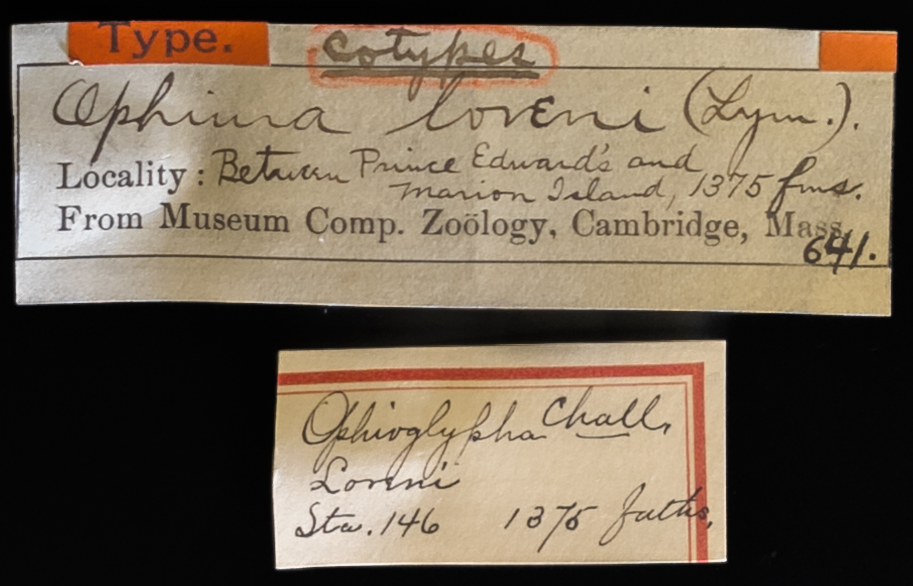 Type.
cotypes
Ophiura loveni (Lym.).
Locality: Between Prince Edward's and
Marion Island, 1375 fms.
From Museum Comp. Zoölogy, Cambridge, Mass.
641.
Ophioglypha Chall.
Loveni
Sta. 146 1375 faths.